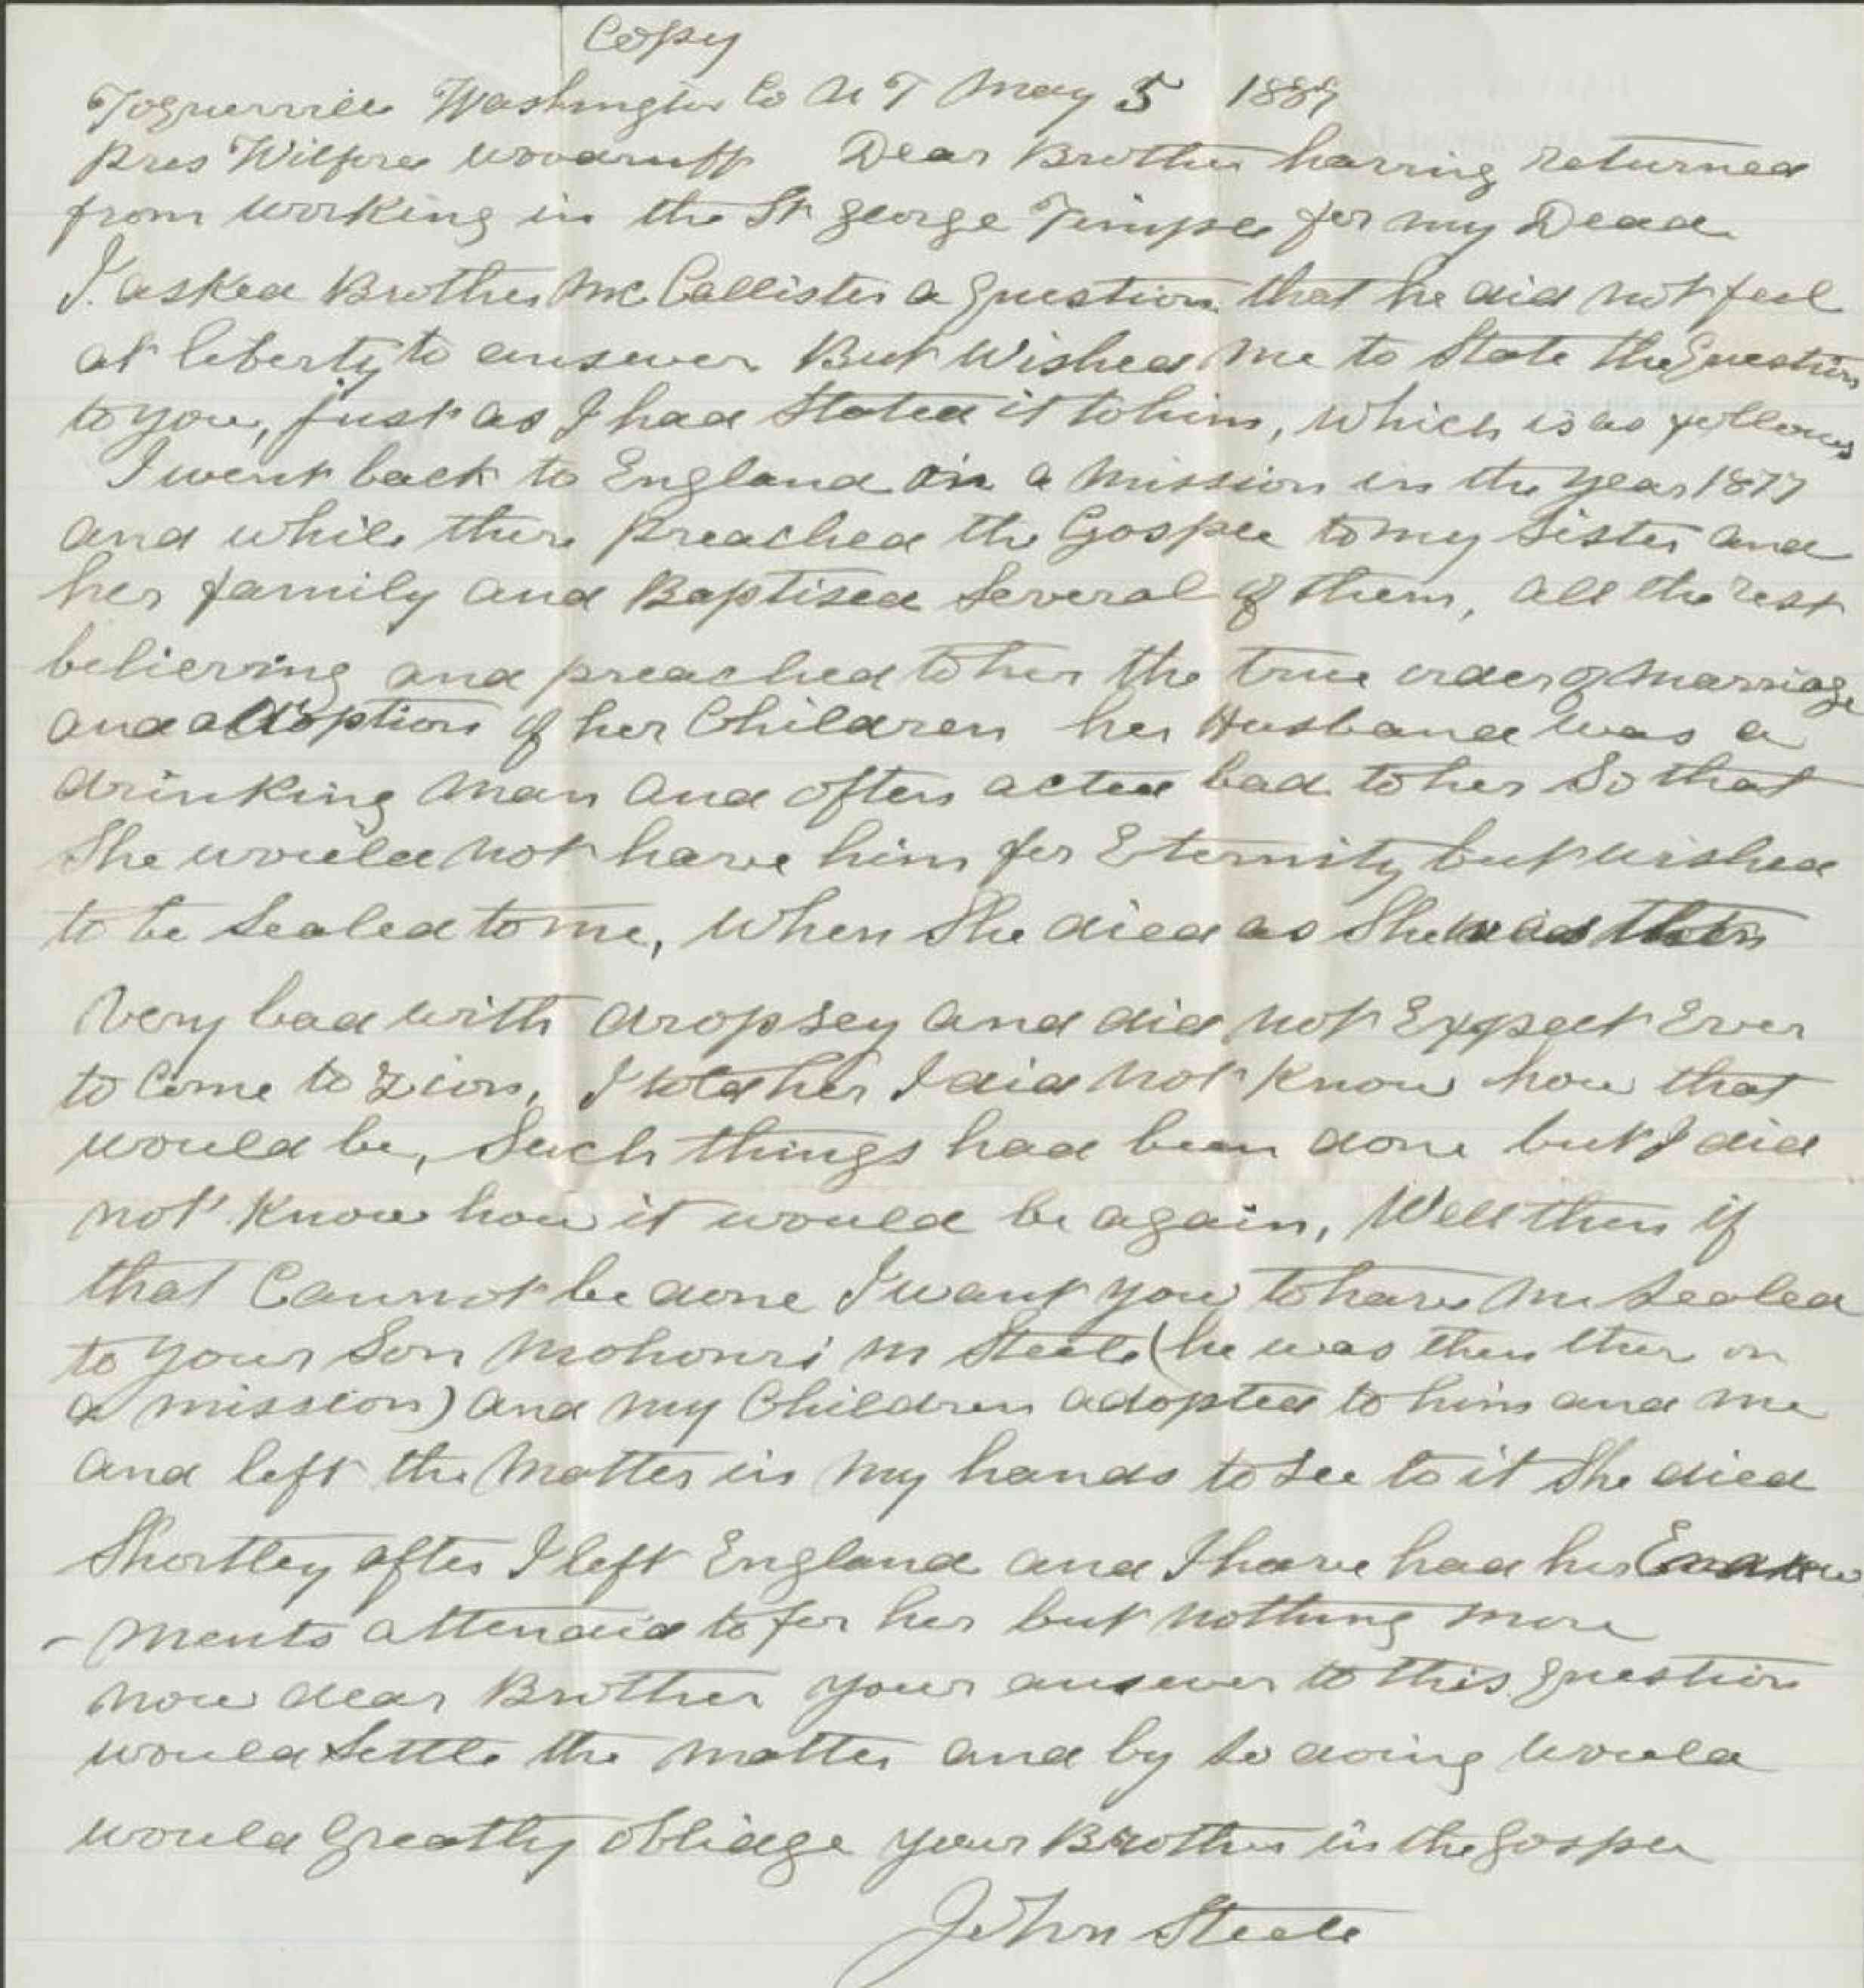 Copy
Toquerville Washington Co U T May 5 1889
Pres Wilford Woodruff Dear Brother having returned
from working in the St George Temple for my Dead
I asked Brother Mc Callister a question that he did not feel
at liberty to answer But Wished me to State the Question
to you, just as I had Stated it to him, which is as follows
I went back to England on a mission in the year 1877
and while there preached the Gospel to my Sister and
her family and Baptised Several of them, all the rest
believing and preached to her the true order of marriage
and addoption of her Children her Husband was a
drinking man and often acted bad to her So that
She would not have him for Eternity but wished
to be Sealed to me, when She died as She was then
very bad with dropsey and did not Expect Ever
to Come to Zion, I told her I did not know how that
would be, Such things had been done but I did
not know how it would be again, Well then if
that Cannot be done I want you to have me Sealed
to your Son Mohonri M Steele (he was then there on
a mission) and my Children adopted to him and me
and left the Matter in my hands to See to it She died
Shortley after I left England and I have had her Endow
- ments attended to for her but nothing more
now dear Brother your answer to this question
would Settle the matter and by so doing would
would Greatly oblidge your Brother in the Gospel
John Steele